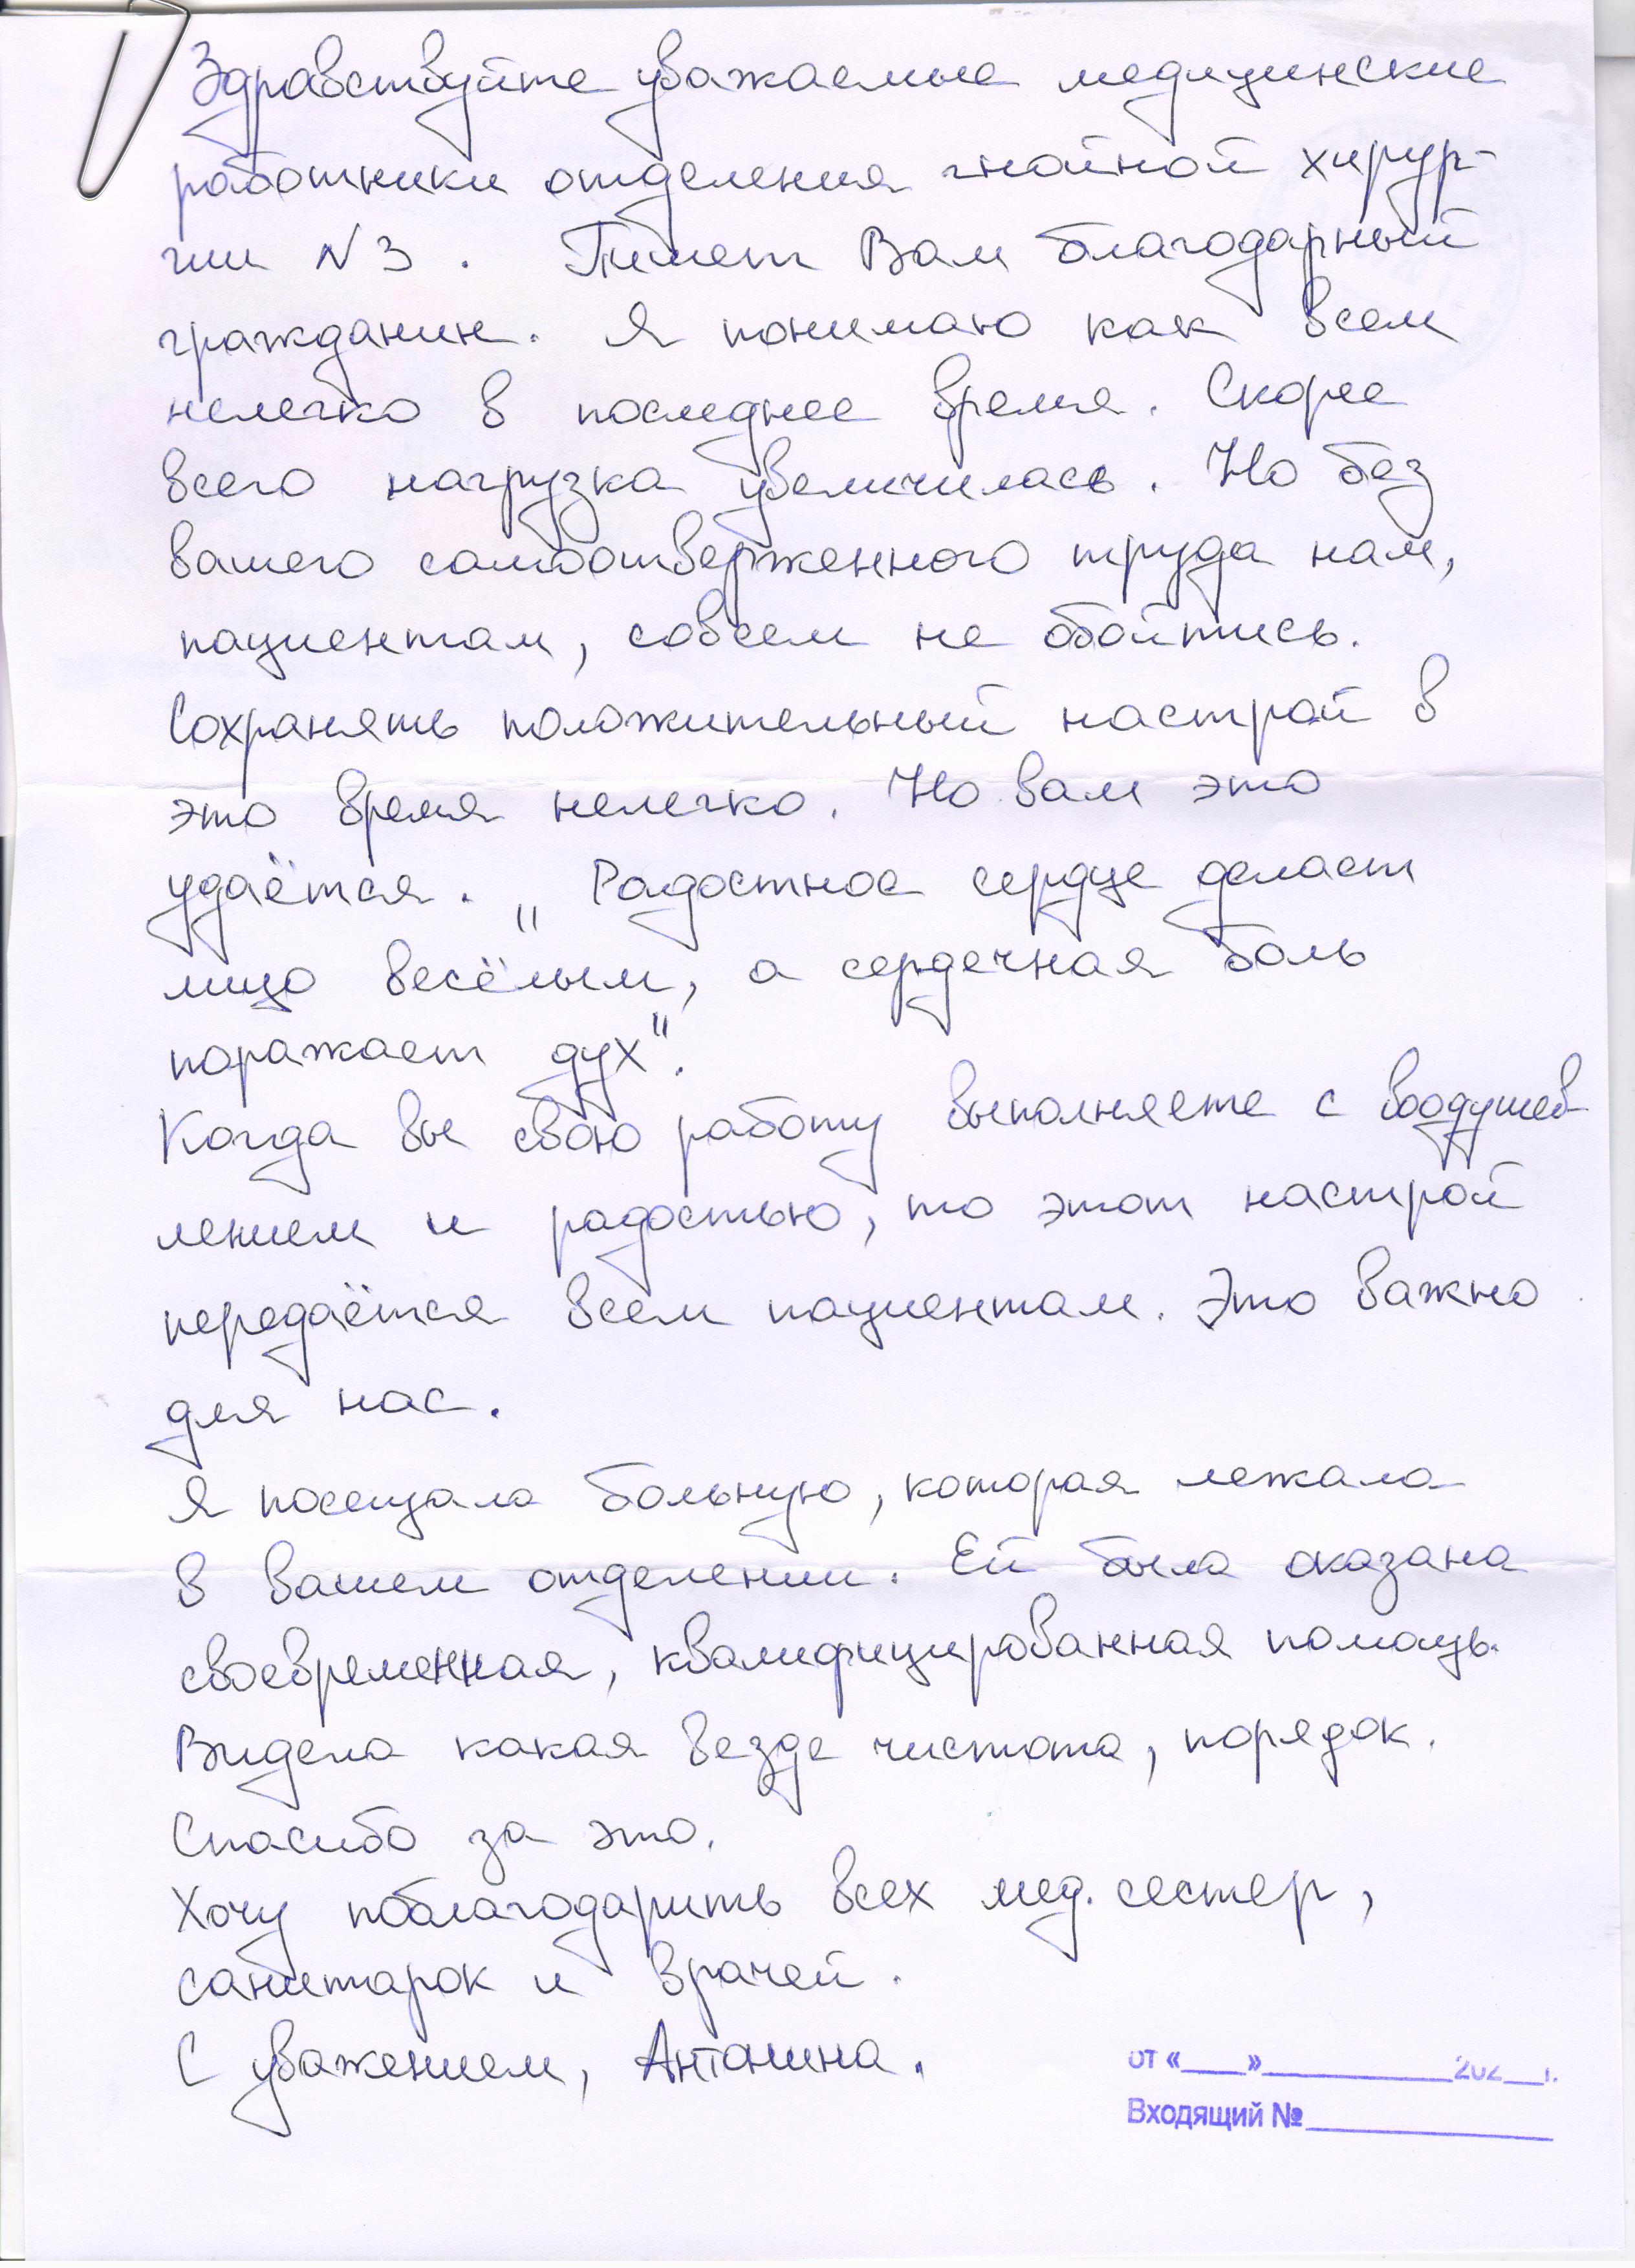 Здравствуйте уважаемые медицинские
работники отделения гнойной хирур-
гии N3. Пишет Вам благодарный
гражданин. Я понимаю как всем
нелегко в последнее время. Скорее
всего нагрузка увеличилась. Но без
вашего самоотверженного труда нам,
пациентам, совсем не обойтись.
Сохранять положительный настрой в
это время нелегко. Но вам это
удаётся. „Радостное сердце делает
лицо весёлым, а сердечная боль
поражает дух".
Когда вы свою работу выполняете с воодушев-
лением и радостью, то этот настрой
передаётся всем пациентам. Это важно
для нас.
Я посещала больную, которая лежала
в вашем отделении. Ей была оказана
своевременная, квалифицированная помощь.
Видела какая везде чистота, порядок.
Спасибо за это.
Хочу поблагодарить всех мед. сестер,
санитарок и врачей.
С уважением, Антонина.
от «___»____________202__г.
Входящий №________________